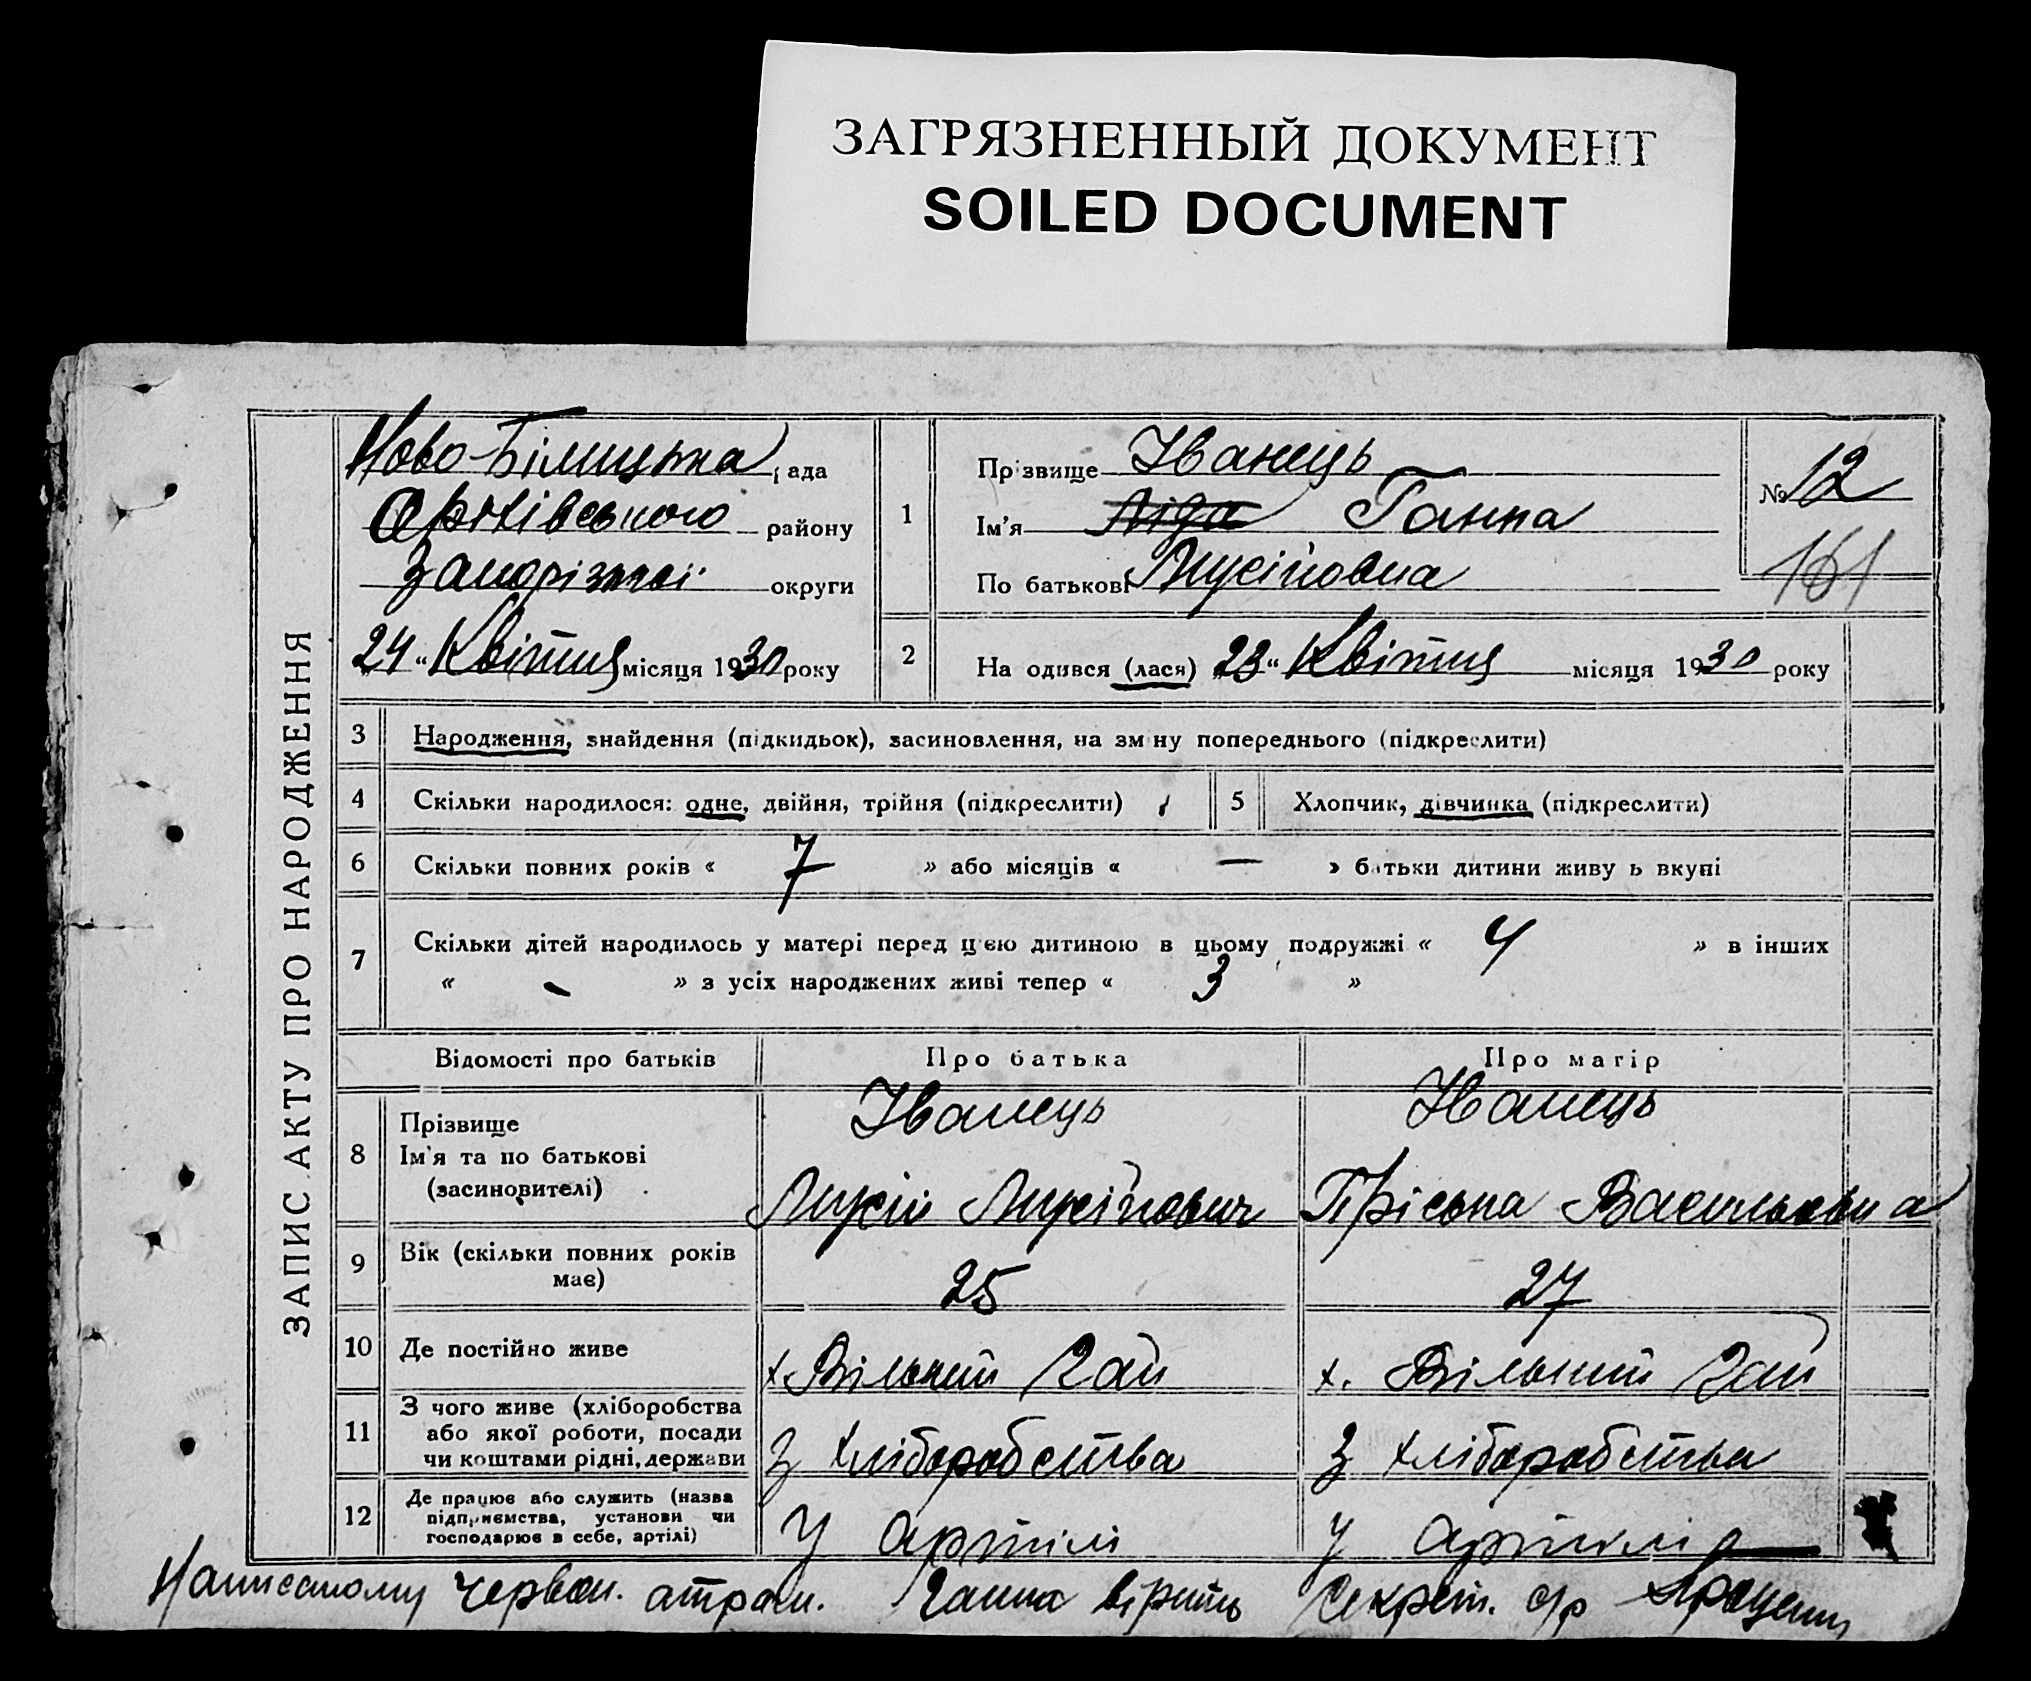 ЗАГРЯЗНЕННЫЙ ДОКУМЕНТ
SOILED DOCUMENT
ЗАПИС АКТУ ПРО НАРОДЖЕННЯ
Ново-Білицька рада
району
Запорізької округи
24 „ Квітня місяця 1930 року
1
Прізвище Іванець
Ім'я Ліда Ганна
По батькові Мусіївна
№ 12
161
2
На одився (лася) 23 „ Квітня місяця 1930 року
3 Народження, знайдення (підкидьок), засиновлення, на зм ну попереднього (підкреслити)
4 Скільки народилося: одне, двійня, трійня (підкреслити) 1
5 Хлопчик, дівчинка (підкреслити)
6 Скільки повних років « 7 » або місяців « — » батьки дитини живу ь вкупі
7 Скільки дітей народилось у матері перед цією дитиною в цьому подружжі « 4 » в інших
« - » з усіх народжених живі тепер « 3 »
Відомості про батьків Про батька Про матір
8 Прізвище
Ім'я та по батькові
(засиновителі)
Іванець
Мусій Мусійович
Іванець
Пріська Васильовна
9 Вік (скільки повних років
має)
25
27
10 Де постійно живе х. Вільний Гай х. Вільний Гай
11 З чого живе (хліборобства
або якої роботи, посади
чи коштами рідні, держави
З хліборобства
З хліборобства
12 Де працює або служить (назва
підприємства, установи чи
господарює в себе, артілі)
У артілі
У артілі
Написаному червон. атрам. Ганна вірить Секрет. с/р